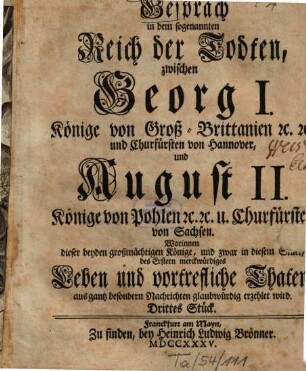 Gespräch
in dem sogenannten
Reich der Todten,
zwischen
Georg I.
Könige von Groß-Brittanien ꝛc. ꝛc.
und Churfürsten von Hannover,
und
August II.
Könige von Pohlen ꝛc. ꝛc. u. Churfürste
von Sachsen.
Worinnen
dieser beyden großmächtigen Könige, und zwar in diesem
des Erstern merckwürdiges
Leben und vortrefliche Thaten
aus gantz besondern Nachrichten glaubwürdig erzehlet wird.
Drittes Stück.
Franckfurt am Mayn,
Zu finden, bey Heinrich Ludwig Brönner.
MDCCXXXV.
Ta/54/111